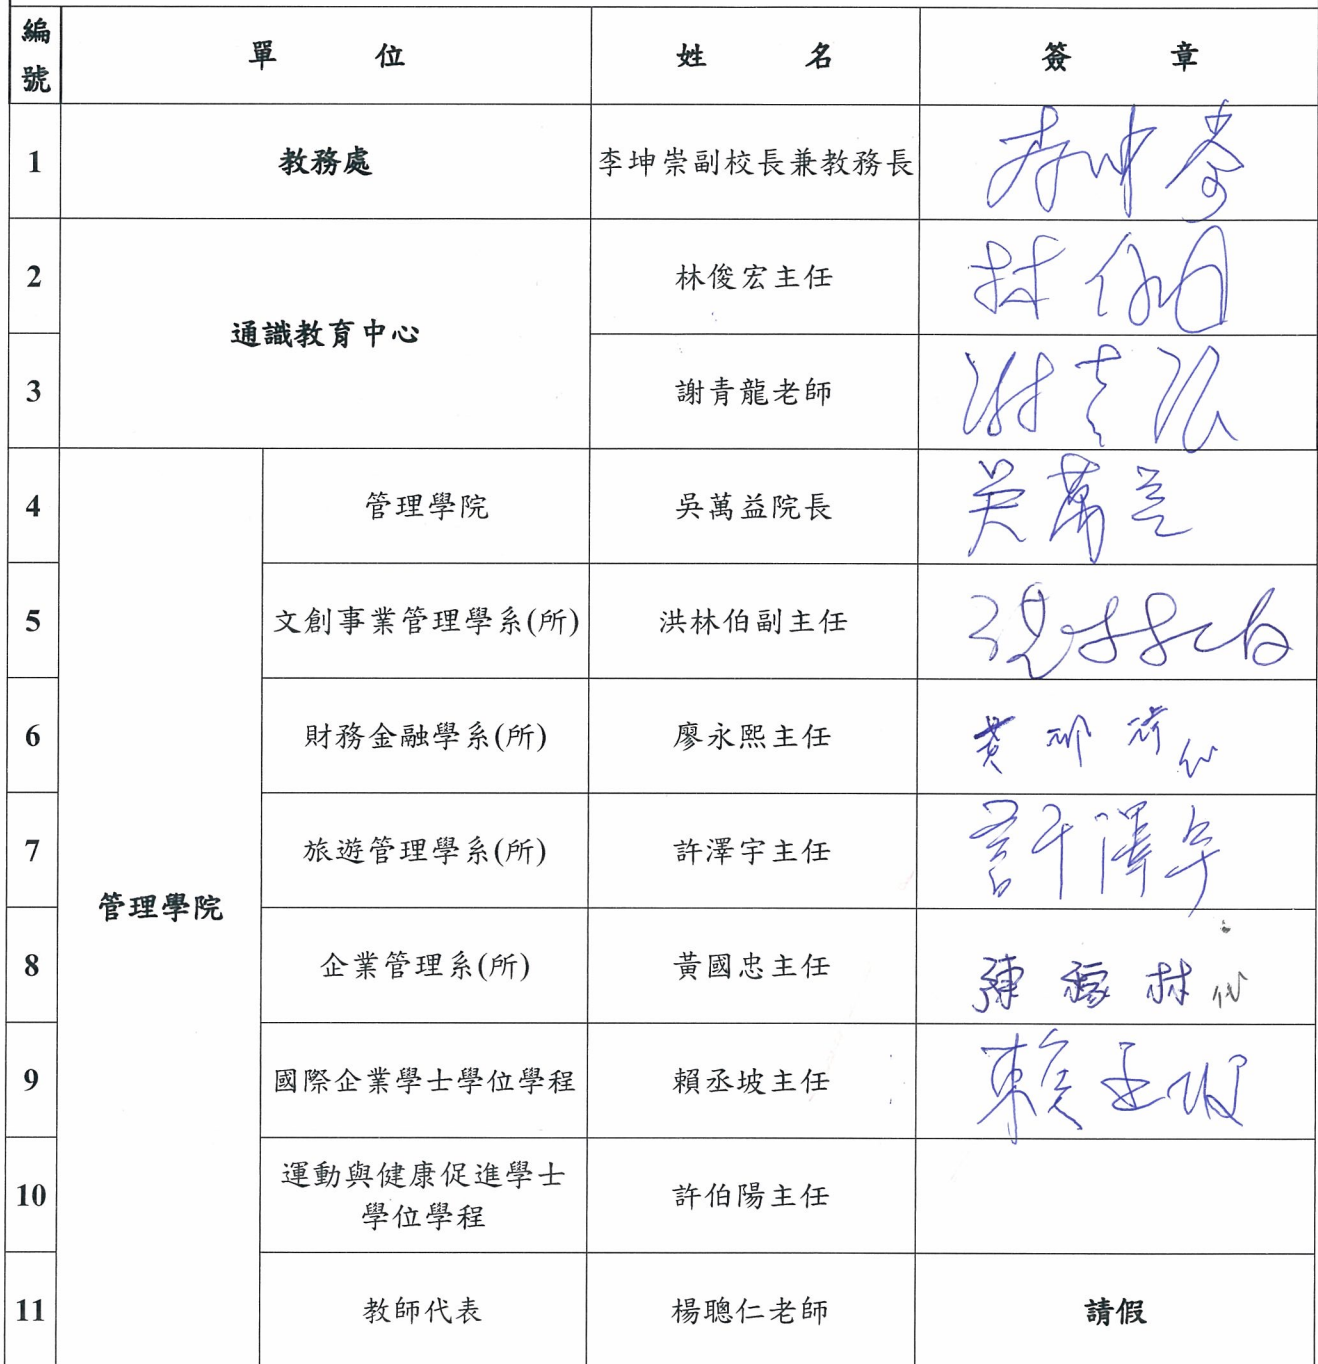 編號 單位 姓名 簽章
1 教務處 李坤崇副校長兼教務長 李坤崇
2 通識教育中心 林俊宏主任 林俊宏
3 謝青龍老師 謝青龍
4 管理學院 管理學院 吳萬益院長 吳萬益
5 文創事業管理學系(所) 洪林伯副主任 洪林伯
6 財務金融學系(所) 廖永熙主任 代
7 旅遊管理學系(所) 許澤宇主任 許澤宇
8 企業管理系(所) 黃國忠主任 代
9 國際企業學士學位學程 賴丞坡主任 賴丞坡
10 運動與健康促進學士
學位學程 許伯陽主任
11 教師代表 楊聰仁老師 請假